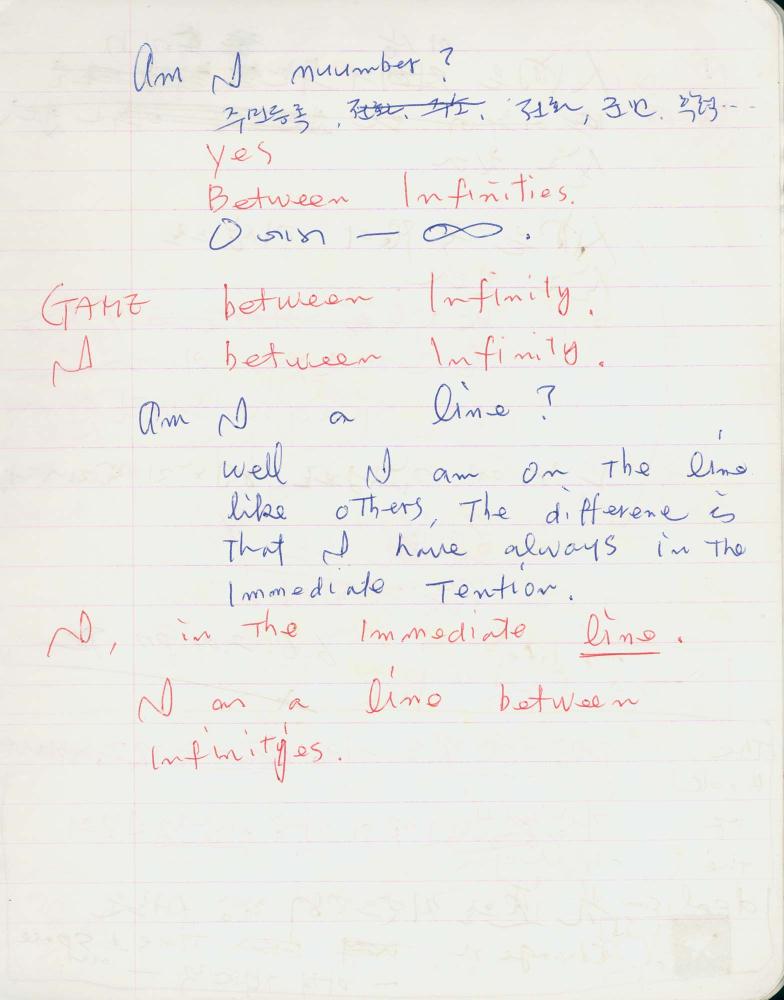 Am I nuumber?
주민등록, 전화, 주소, 전화, 군번, 학력...
yes
Between Infinities.
0 에서 — ∞.
GAME between Infinity.
I between Infinity.
Am I a line?
well I am on the line
like others, The differene is
that I have always in the
Immediate Tention.
I, in the Immediate line.
I am a line between
Infinityes.